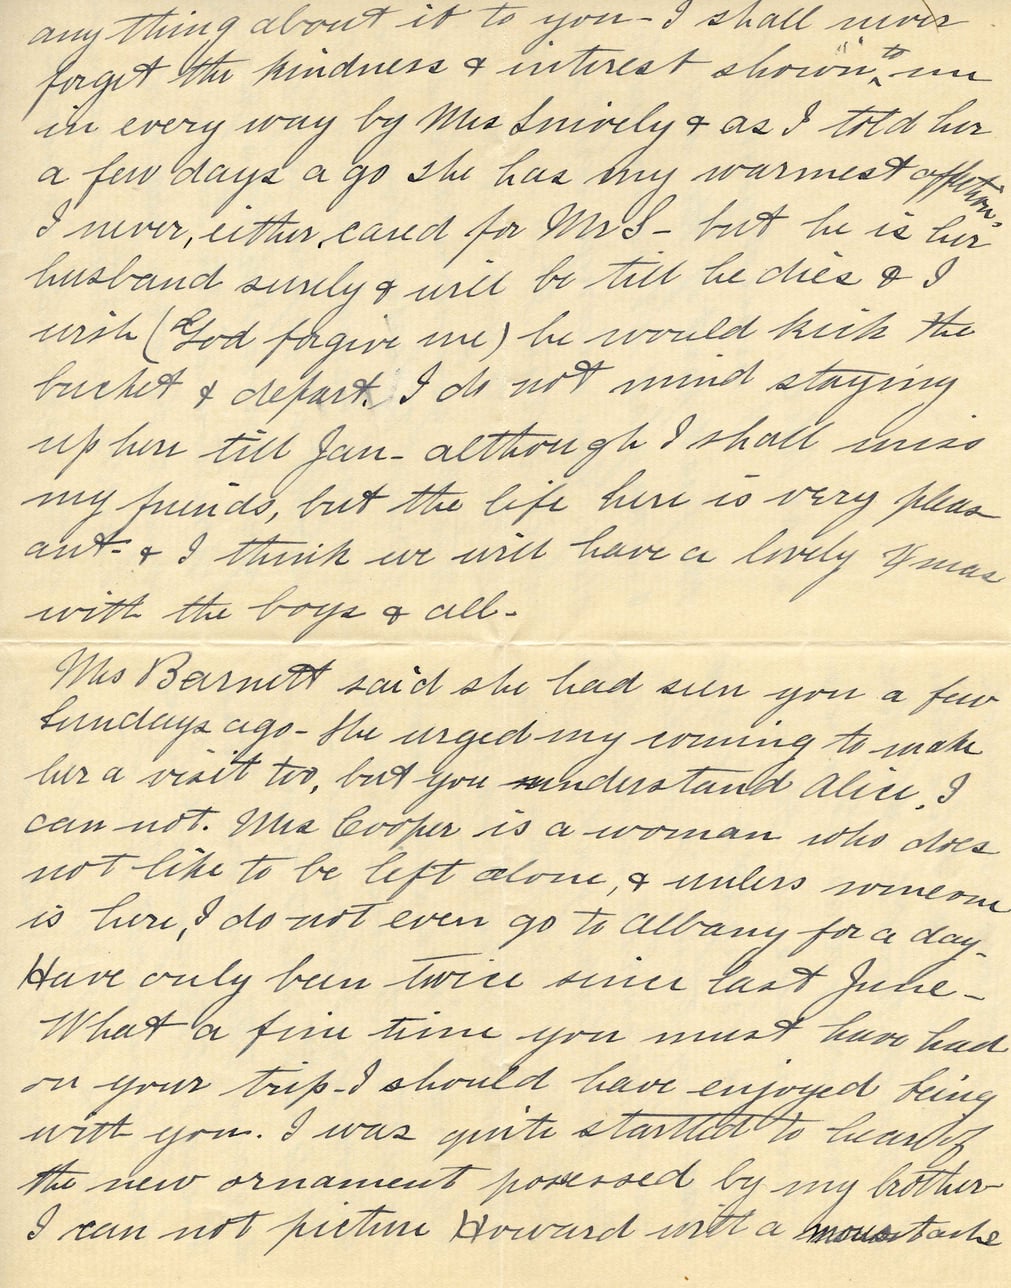 anything about it to you - I shall never
forget the kindness & interest shown to me
in every way by Mrs Snively & as I told her
a few days ago she has my warmest affection.
I never, either, cared for Mr S - but he is her
husband surely & will be till he dies & I
wish (God forgive me) he would kick the
bucket & depart. I do not mind staying
up here till Jan - although I shall miss
my friends, but the life here is very pleas
ant - & I think we will have a lovely Xmas
with the boys & all -
Mrs Barnett said she had seen you a few
Sundays ago - She urged my coming to make
her a visit too, but you understand Alice, I
can not. Mrs Cooper is a woman who does
not like to be left alone, & unless someone
is here, I do not even go to Albany for a day -
Have only been twice since last June -
What a fine time you must have had
on your trip - I should have enjoyed being
with you. I was quite startled to hear of
the new ornament posessed by my brother
I can not picture Howard with a moustache